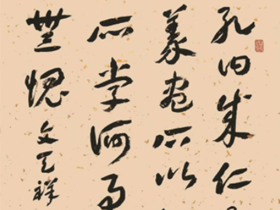 孔曰成仁
義盡所以
所学何事
無愧文天祥